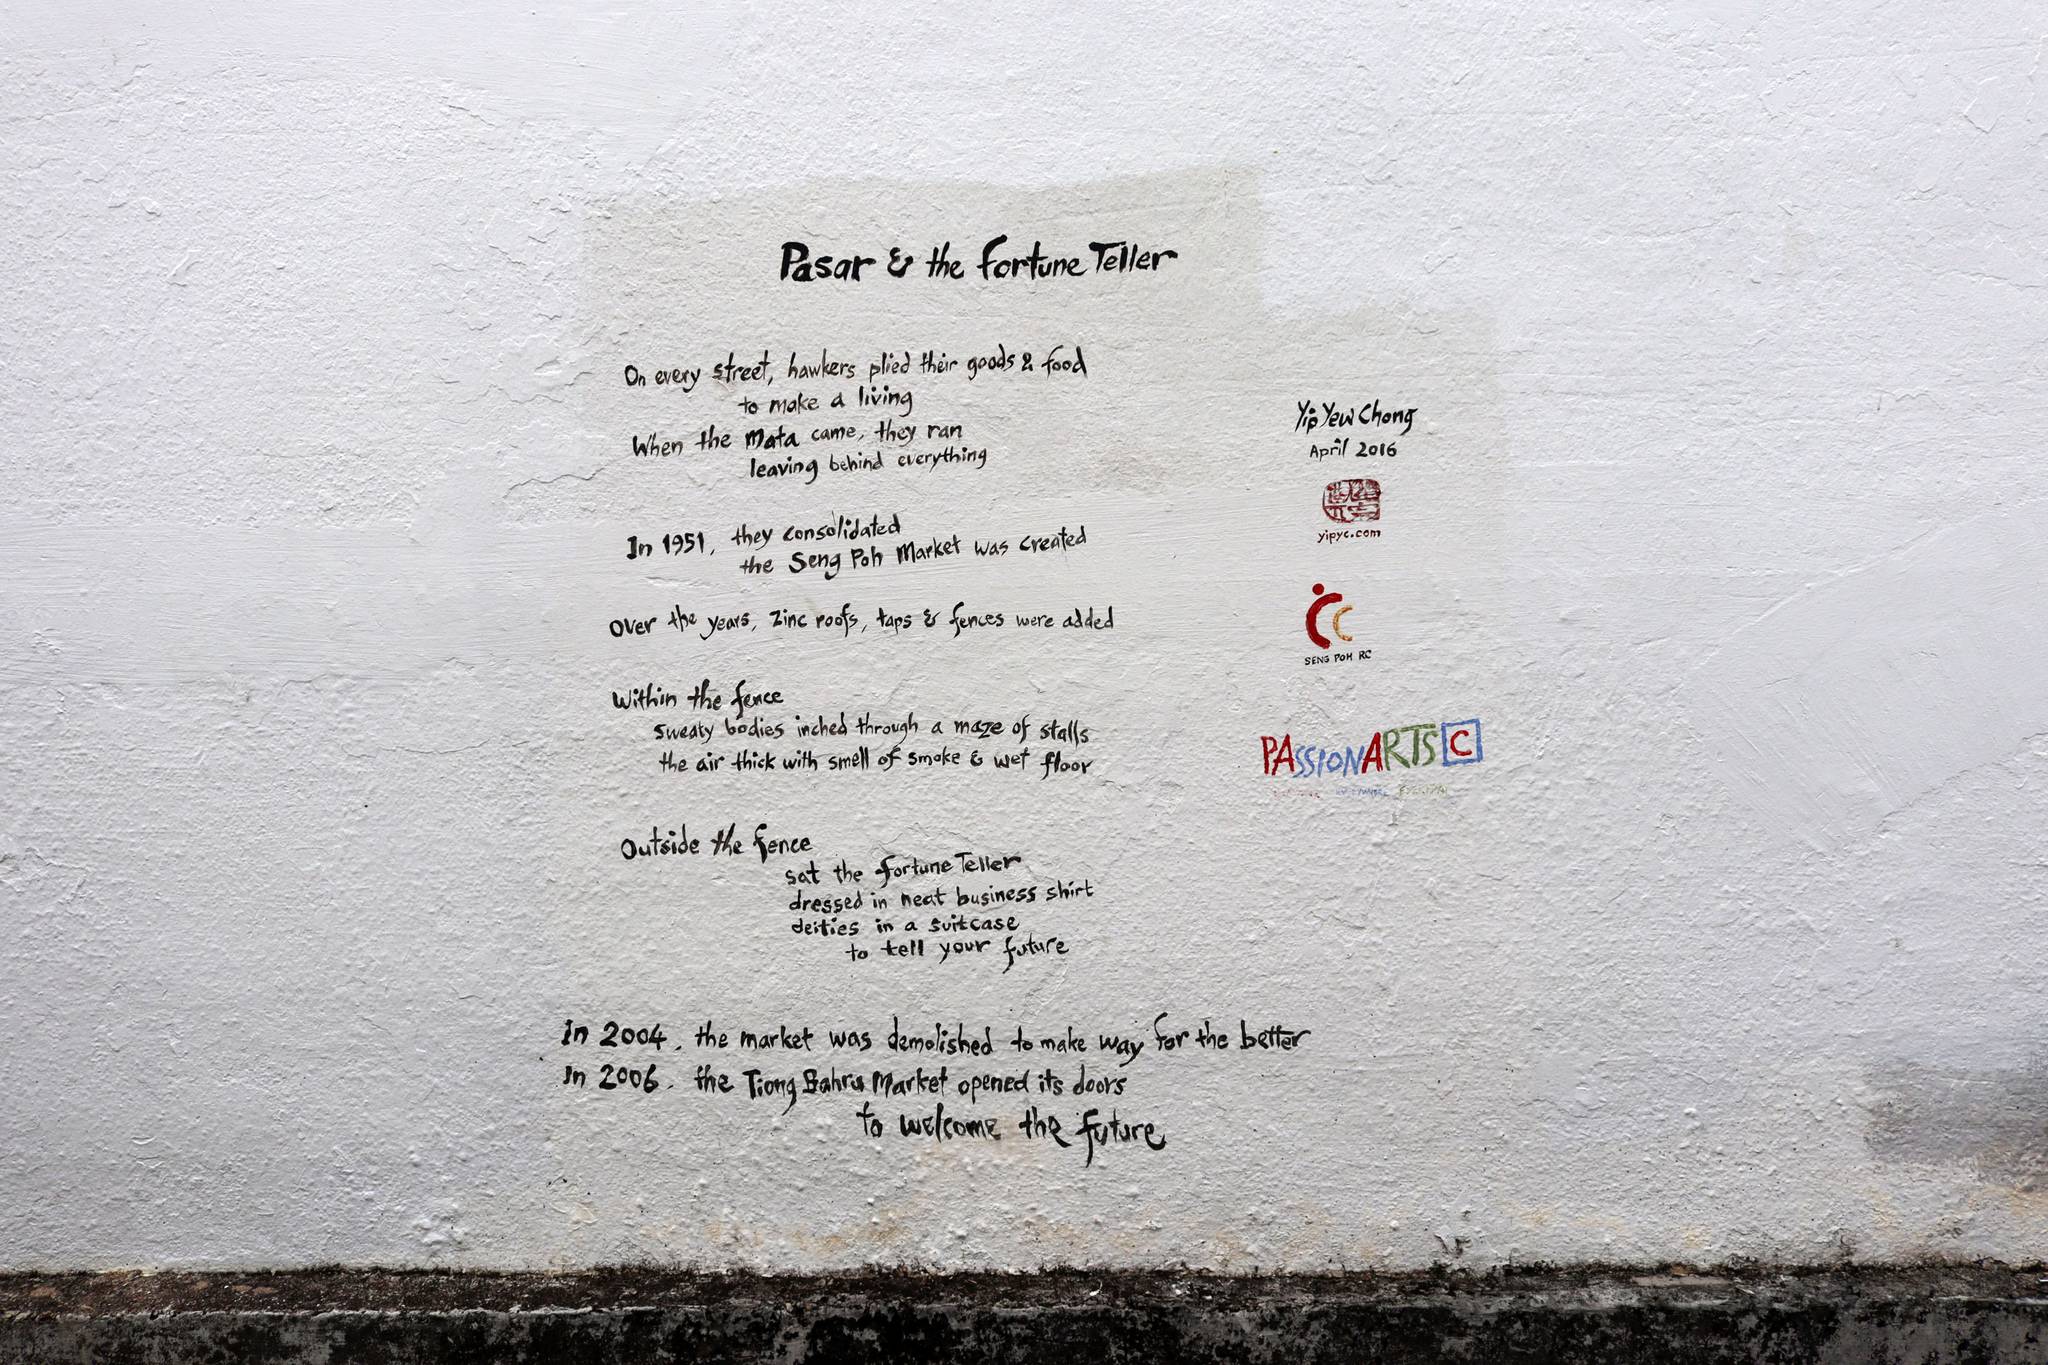 Pasar & the Fortune Teller
On every street, hawkers plied their goods & food
to make a living
When the Mata came, they ran
leaving behind everything
In 1951, they consolidated
the Seng Poh Market was created
Over the years, zinc roofs, taps & fences were added
Within the fence
sweaty bodies inched through a maze of stalls
the air thick with smell of smoke & wet floor
Outside the fence
sat the Fortune Teller
dressed in neat business shirt
deities in a suitcase
to tell your future
In 2004, the market was demolished to make way for the better
In 2006, the Tiong Bahru Market opened its doors
to welcome the future
Yip Yew Chong
April 2016
yipyc.com
SENG POH RC
PASSIONARTS C